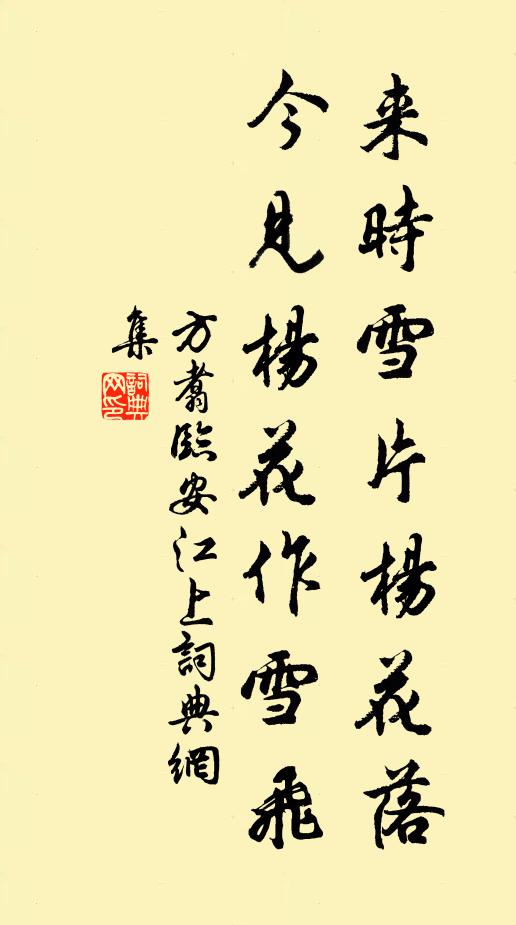 來時雪片楊花落
今見楊花作雪飛
方翥臨安江上詞典網
集
詞典
网印